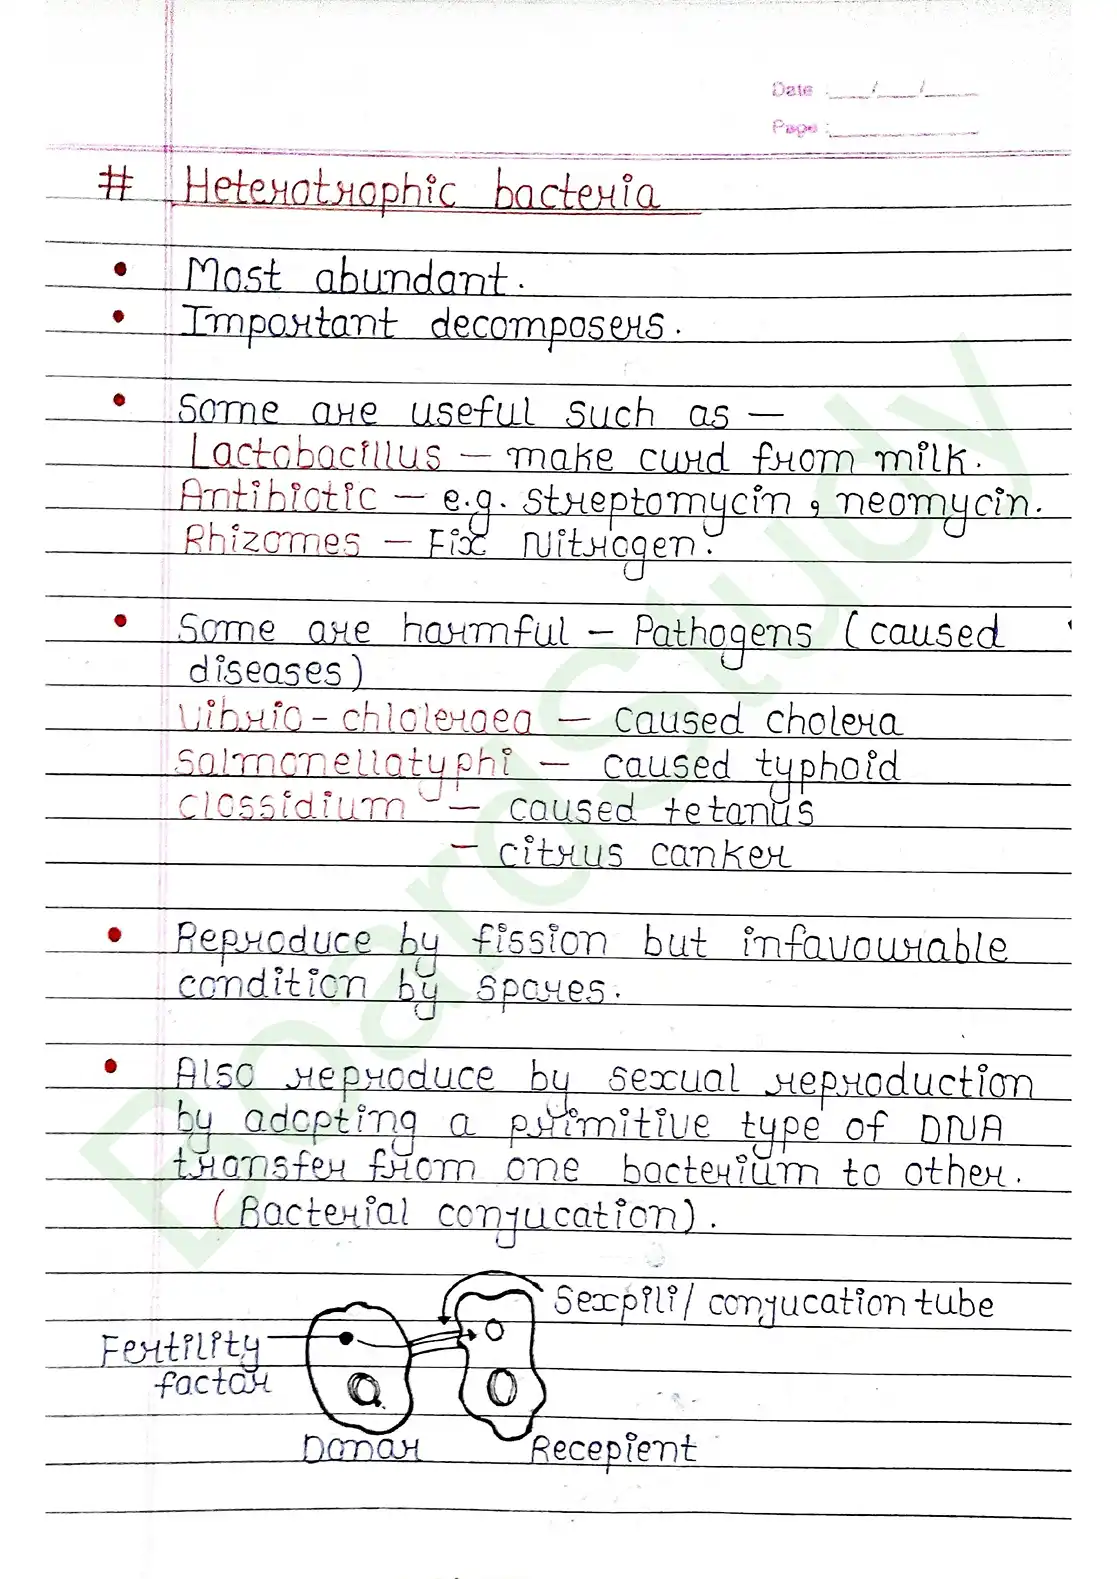 Date :___/___/___
Page :___
# Heterotrophic bacteria
• Most abundant.
• Important decomposers.
• Some are useful such as —
Lactobacillus — make curd from milk.
Antibiotic — e.g. streptomycin, neomycin.
Rhizomes — Fix Nitrogen.
• Some are harmful – Pathogens (caused
diseases)
Vibrio - chloleraea — caused cholera
Salmonellatyphi — caused typhoid
Clossidium — caused tetanus
— citrus canker
• Reproduce by fission but infavourable
condition by spores.
• Also reproduce by sexual reproduction
by adopting a primitive type of DNA
transfer from one bacterium to other.
(Bacterial conjucation).
Sexpili/conjucation tube
Fertility
factor
Donar
Recepient
BoardStudy